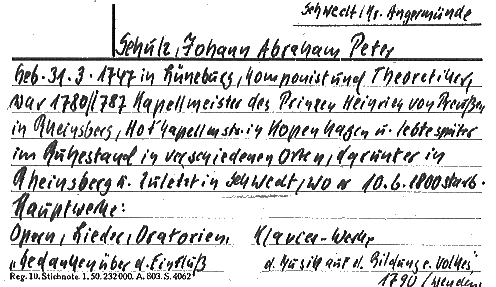 Schwedt/Kr. Angermünde
Schulz, Johann Abraham Peter
Geb. 31.3.1747 in Lüneburg, Komponist und Theoretiker,
war 1780/1787 Kapellmeister des Prinzen Heinrich von Preußen
in Rheinsberg, Hofkapellmstr. in Kopenhagen u. lebte später
im Ruhestand in verschiedenen Orten, darunter in
Rheinsberg u. zuletzt in Schwedt, wo er 10.6.1800 starb.
Hauptwerke:
Opern, Lieder, Oratorien, Klavier-Werke,
"Gedanken über d. Einfluß d. Musik auf d. Bildung e. Volkes"
Reg. 10. Stichnote. 1. 50. 232000. A. 803. S. 4062 1790